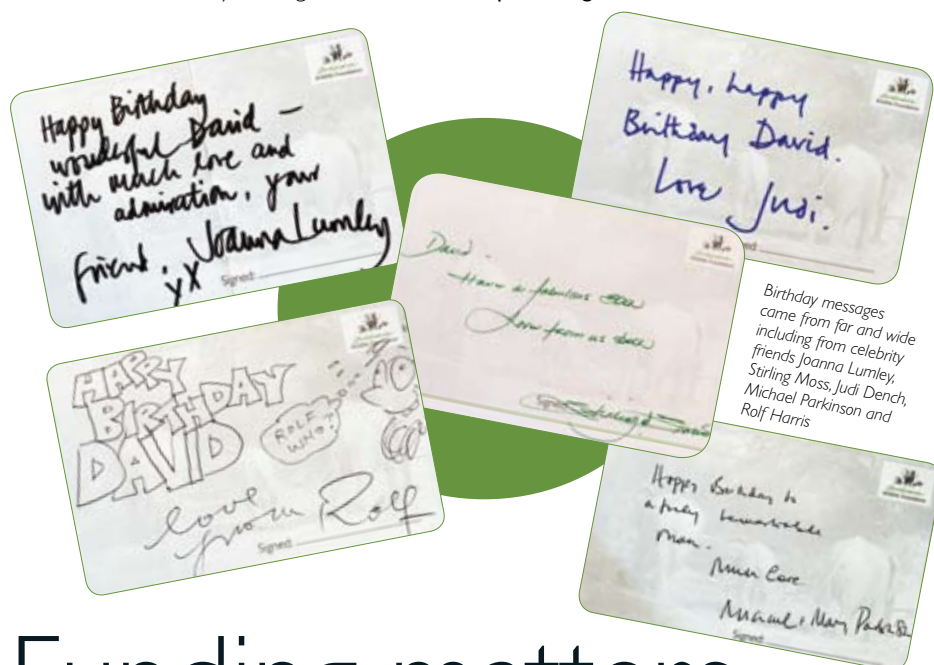 Happy Birthday
wonderful David –
with much love and
admiration, your
friend, Joanna Lumley
xx
Signed
Happy, happy
Birthday David.
Love Judi.
David -
Have a fabulous
Love from us
Signed
Birthday messages
came from far and wide
including from celebrity
friends Joanna Lumley,
Stirling Moss, Judi Dench,
Michael Parkinson and
Rolf Harris
HAPPY
BIRTHDAY
DAVID
ROLF
WHO?
love
from Rolf
Signed
Happy Birthday to
a truly remarkable
man.
Much Love
Michael & Mary Parkinson
Signed
Funding matters